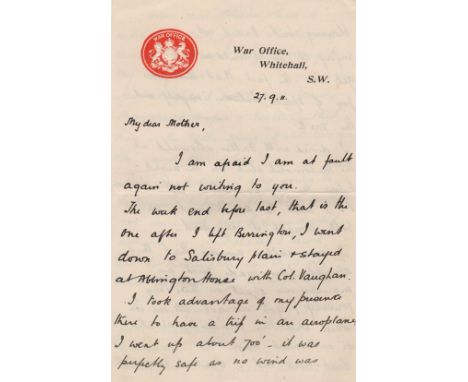 WAR OFFICE
War Office,
Whitehall,
S.W.
27.9.11.
My dear Mother,
I am afraid I am at fault
again not writing to you.
The week end before last, that is the
one after I left Berrington, I went
down to Salisbury plain & stayed
at Ablington House with Col. Vaughan.
I took advantage of my presence
there to have a trip in an aeroplane,
I went up about 700' - it was
perfectly safe as no wind was